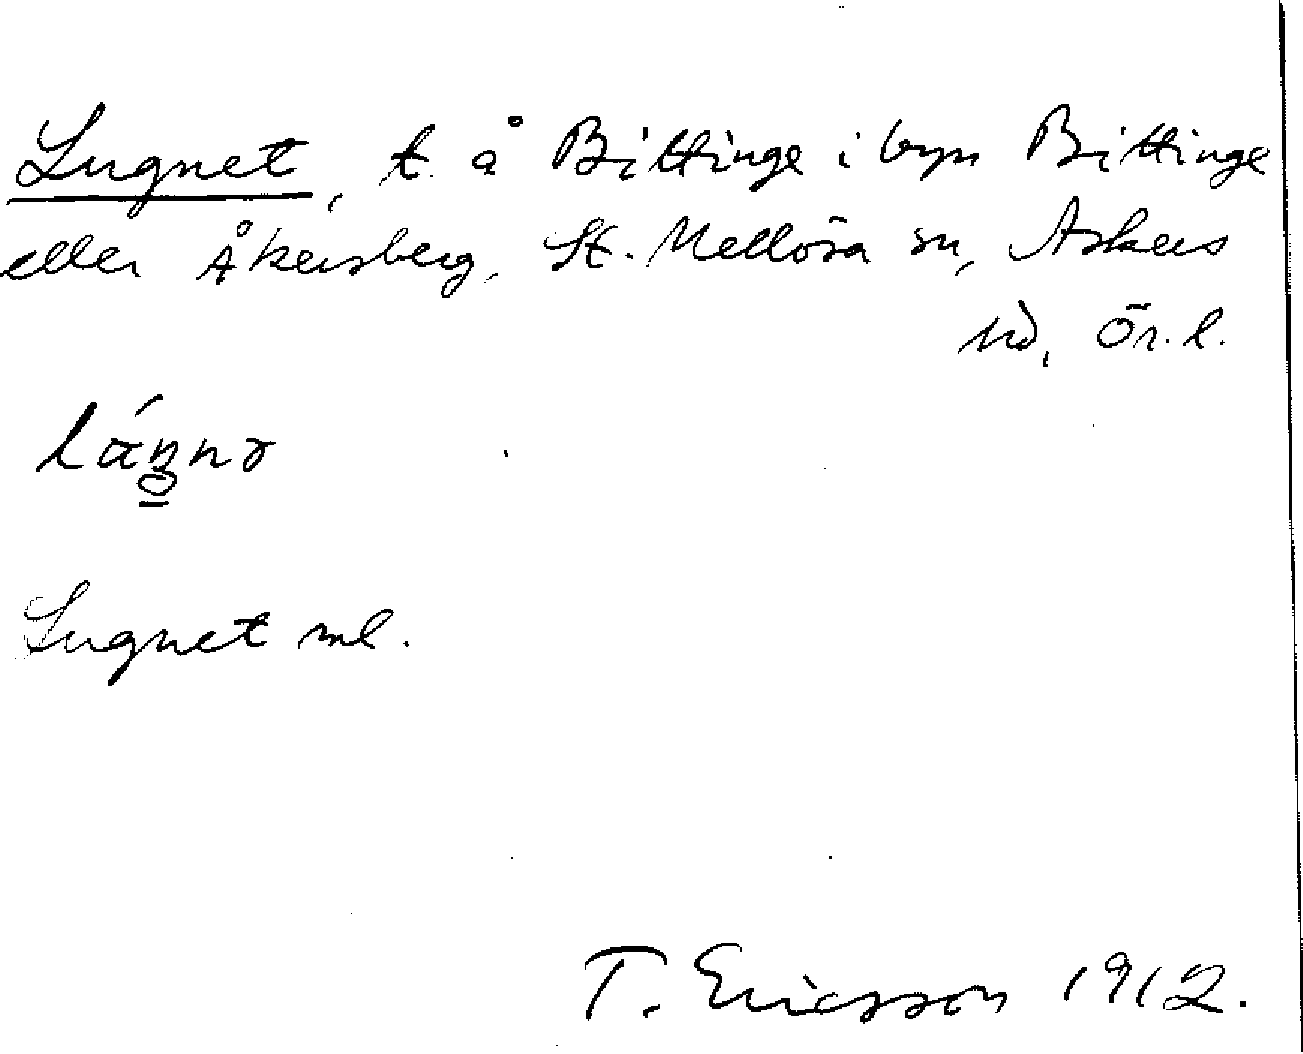 Lugnet, t. å Bittinge i byn Bittinge
eller Åkersberg, St. Mellösa sn, Askers
hd, Ör. l.
Lugnet ml.
T. Ericsson 1912.